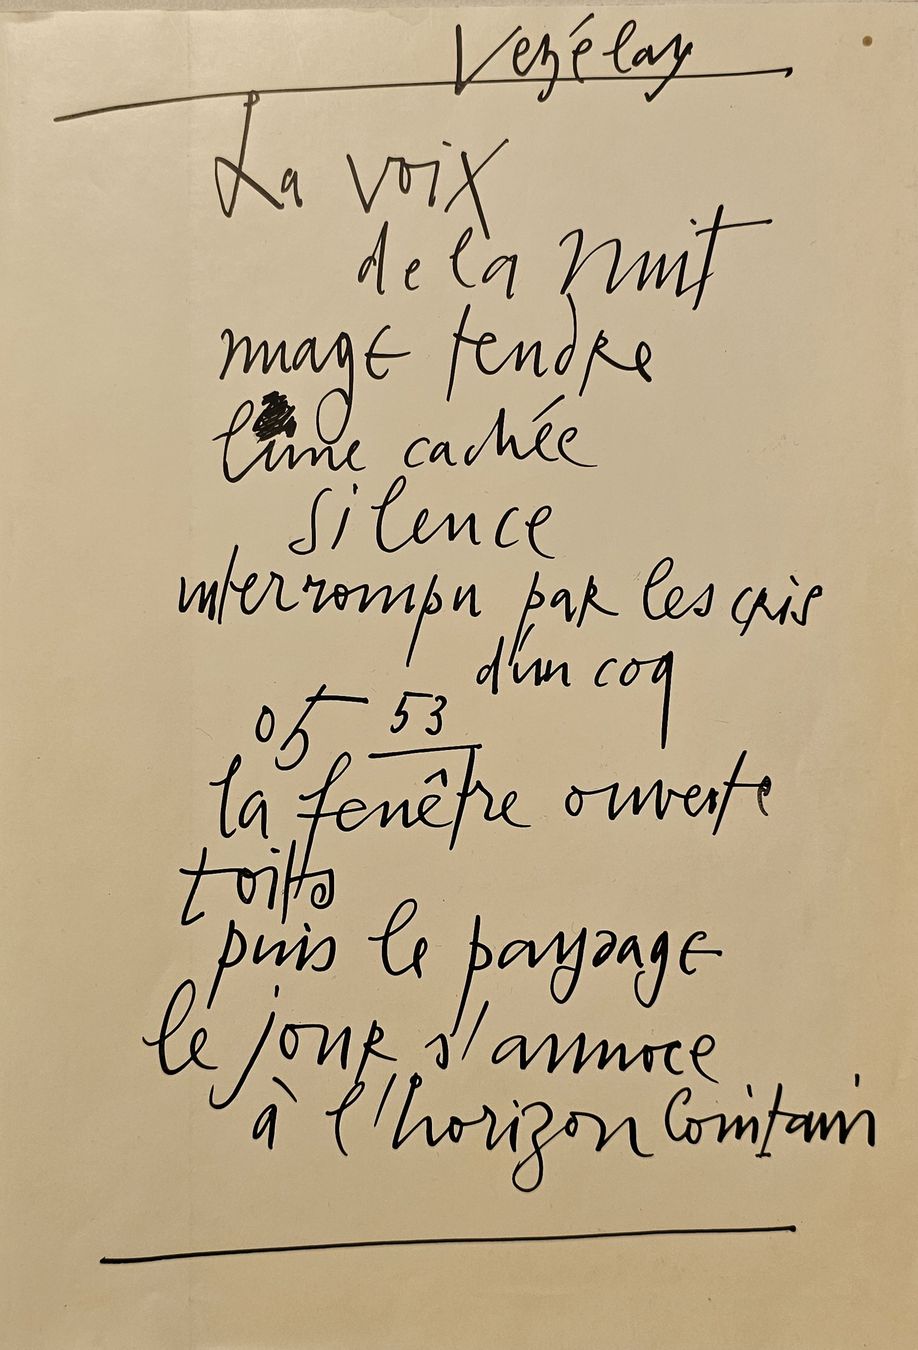 Vezélay
La voix
de la nuit
nuage tendre
lune cachée
silence
interrompu par les cris
d'un coq
05 53
la fenêtre ouverte
toits
puis le paysage
le jour s'annoce
à l'horizon lointain